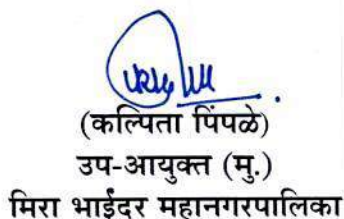 (कल्पिता पिंपळे)
उप-आयुक्त (मु.)
मिरा भाईंदर महानगरपालिका